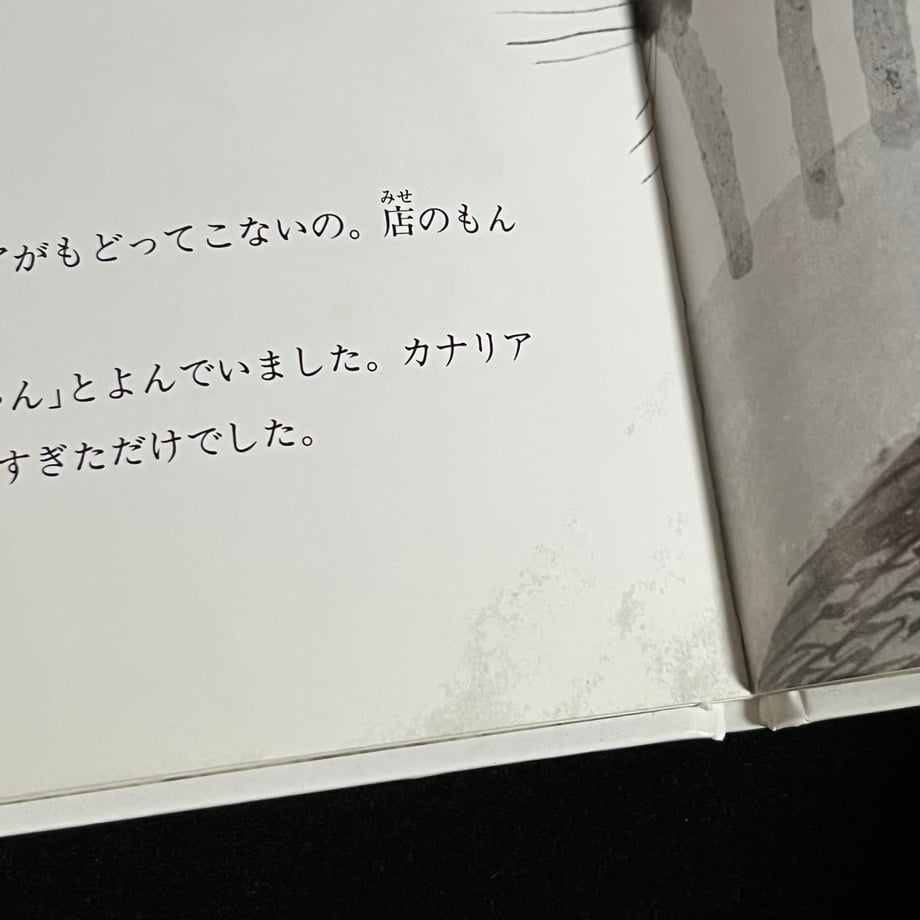 がもどってこないの。店のもん
ん」とよんでいました。カナリア
すぎただけでした。